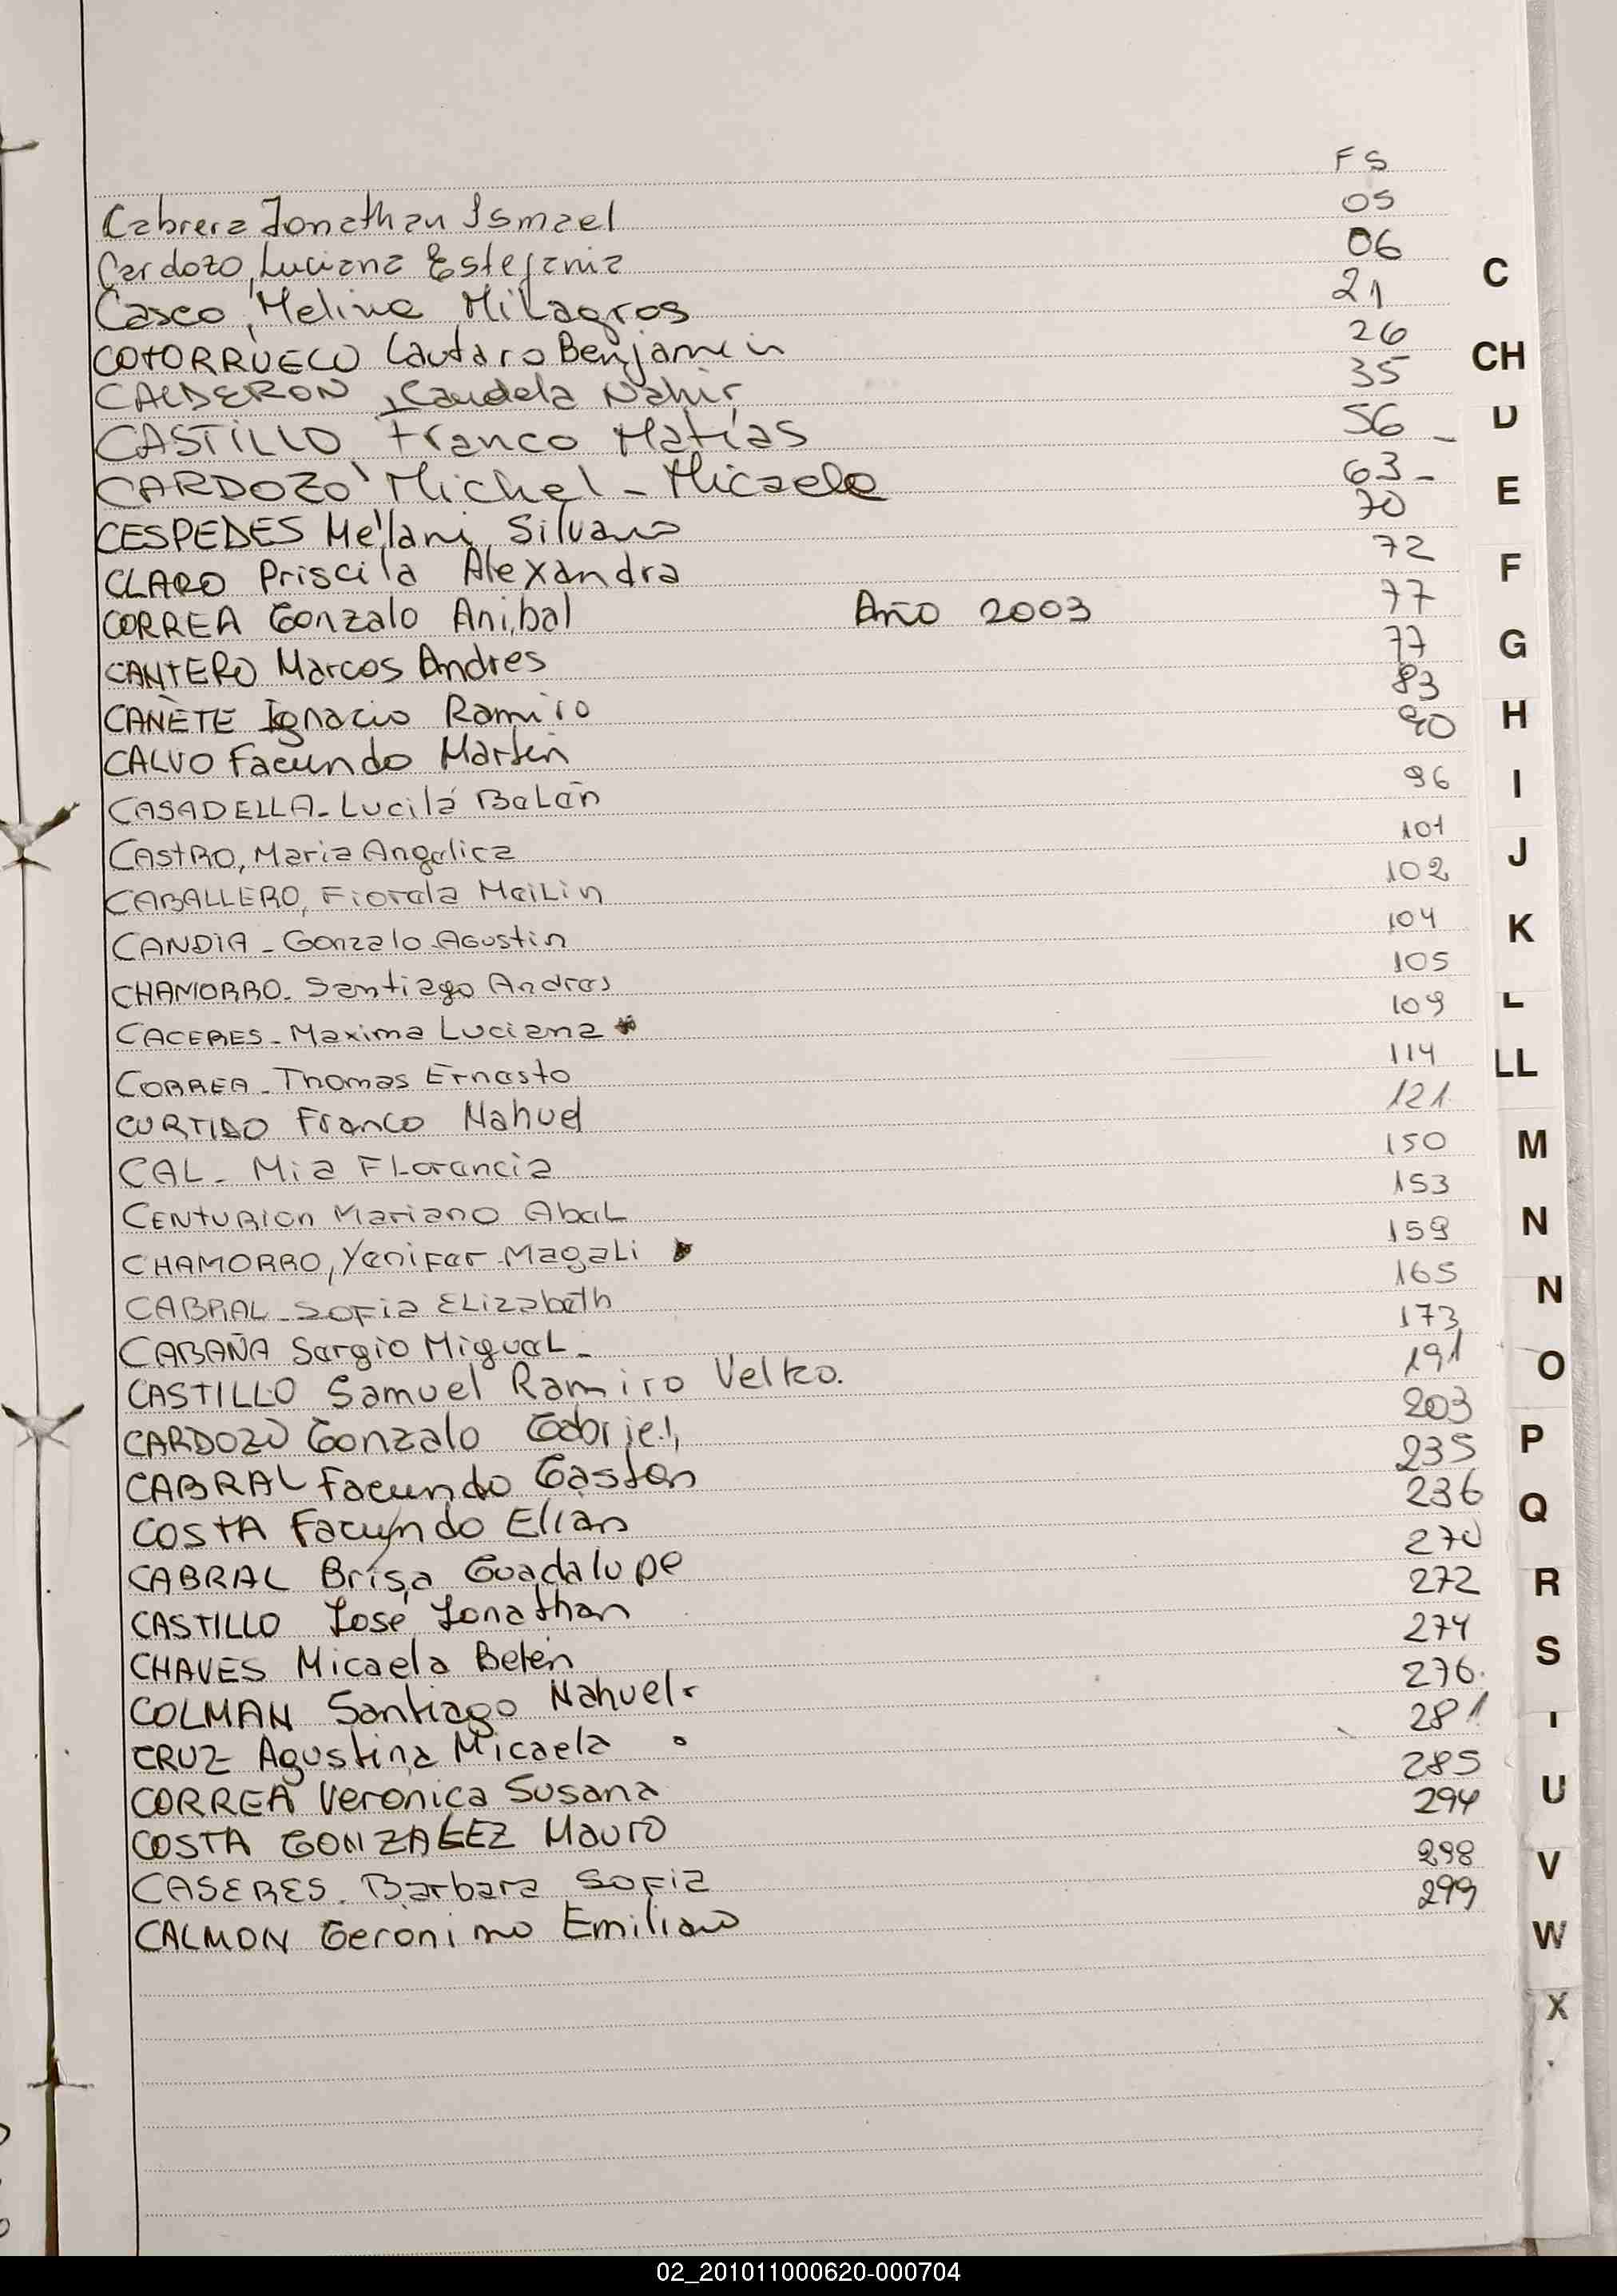 FS
Cabrera Jonathan Ismael 05
Cardozo, Luciana Estefania 06
Casco, Melina Milagros 21
COTORRUELO Lautaro Benjamin 26
CALDERON, Candela Nahir 35
CASTILLO Franco Matías 56 -
CARDOZO Michel - Micaela 63 -
CESPEDES Melani Silvana 70
CLARO Priscila Alexandra 72
CORREA Gonzalo Anibal Año 2003 77
CANTERO Marcos Andres 77
CAÑETE Ignacio Ramiro 83
CALVO Facundo Martin 90
CASADELLA - Lucila Belén 96
CASTRO, Maria Angelica 101
CABALLERO, Fiorela MaiLin 102
CANDIA - Gonzalo Agustin 104
CHAMORRO - Santiago Andres 105
CACERES - Maxima Luciana 109
CORREA - Thomas Ernesto 114
CURTIDO Franco Nahuel 121
CAL - Mia FLorencia 150
CENTURION Mariano AbeL 153
CHAMORRO, Yenifer Magali 159
CABRAL - Sofia ELizabeth 165
CABAÑA Sergio MigueL - 173
CASTILLO Samuel Ramiro Velko. 191
CARDOZO Gonzalo Gabriel 203
CABRAL Facundo Gastón 235
COSTA Facundo Elian 236
CABRAL Brisa Guadalupe 270
CASTILLO José Jonathan 272
CHAVES Micaela Belén 274
COLMAN Santiago Nahuel. 276.
CRUZ Agustina Micaela 281
CORREA Veronica Susana 285
COSTA GONZALEZ Mauro 294
CASERES - Barbara Sofia 298
CALMON Geronimo Emiliano 299
C
CH
D
E
F
G
H
I
J
K
L
LL
M
N
N
O
P
Q
R
S
U
V
W
X
02_201011000620-000704